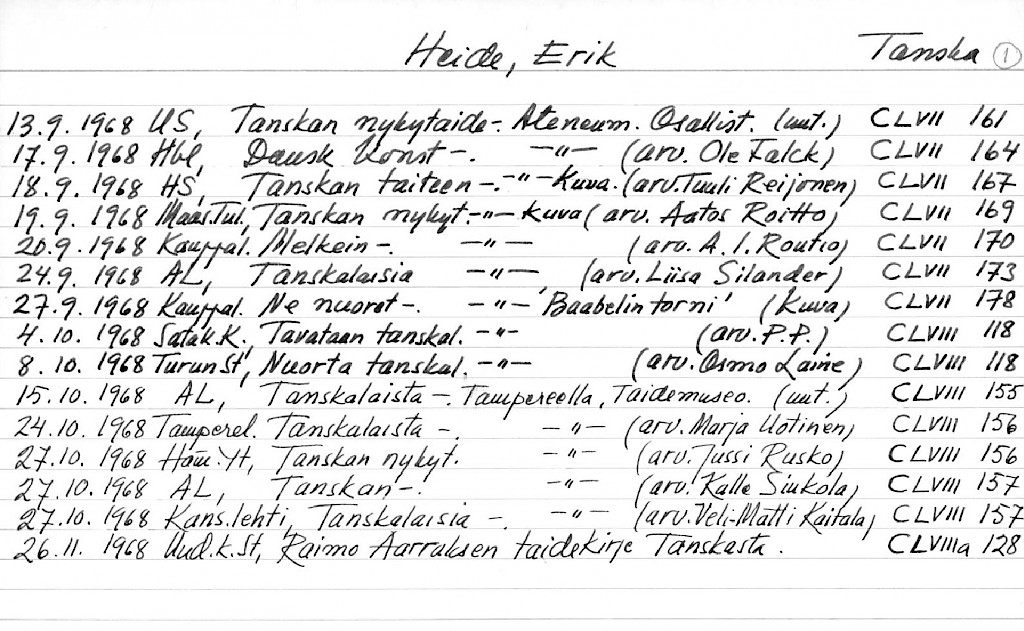 Heide, Erik Tanska 1
13.9. 1968 US, Tanskan nykytaide-. Ateneum. Osallist. (uut.) CLVII 161
17.9. 1968 Hbl, Dansk konst -. -"- (arv. Ole Falck) CLVII 164
18.9. 1968 HS, Tanskan taiteen -. -"- Kuva. (arv. Tuuli Reijonen) CLVII 167
19.9. 1968 Maas.Tul., Tanskan nykyt. -"- kuva (arv. Aatos Roitto) CLVII 169
20.9. 1968 Kauppal. Melkein -. -"- (arv. A. I. Routio) CLVII 170
24.9. 1968 AL, Tanskalaisia -"- (arv. Liisa Silander) CLVII 173
27.9. 1968 Kauppal. Ne nuoret -. -"- 'Baabelin torni' (kuva) CLVII 178
4.10. 1968 Satak.K., Tavataan tanskal. -"- (arv. P.P.) CLVIII 118
8.10. 1968 Turun St, Nuorta tanskal. -"- (arv. Osmo Laine) CLVIII 118
15.10. 1968 AL, Tanskalaista -. Tampereella, Taidemuseo. (uut.) CLVIII 155
24.10. 1968 Tamperel. Tanskalaista -. -"- (arv. Marja Uotinen) CLVIII 156
27.10. 1968 Häm. Yt, Tanskan nykyt. -"- (arv. Jussi Rusko) CLVIII 156
27.10. 1968 AL, Tanskan -. -"- (arv. Kalle Siukola) CLVIII 157
27.10. 1968 Kans.lehti, Tanskalaisia -. -"- (arv. Veli-Matti Kaitala) CLVIII 157
26.11. 1968 Uud.k.St, Raimo Aarraksen taidekirje Tanskasta. CLVIIIa 128